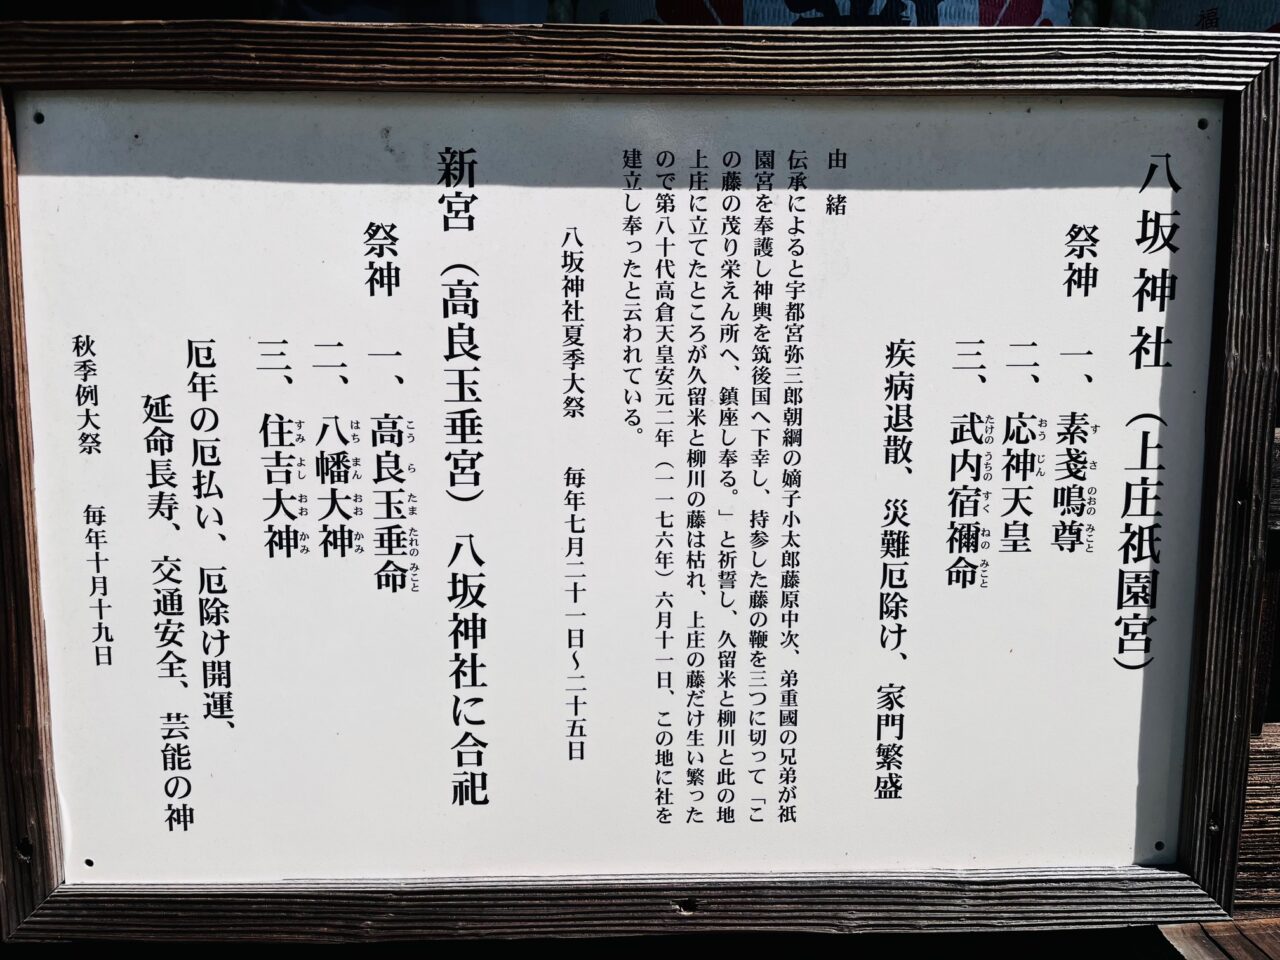 八坂神社（上庄祇園宮）
祭神
一、素戔鳴尊
すさのおのみこと
二、応神天皇
おうじん
三、武内宿禰命
たけのうちのすくねのみこと
疾病退散、災難厄除け、家門繁盛
由緒
伝承によると宇都宮弥三郎朝綱の嫡子小太郎藤原中次、弟重國の兄弟が祇
園宮を奉護し神輿を筑後国へ下幸し、持参した藤の鞭を三つに切って「こ
の藤の茂り栄えん所へ、鎮座し奉る。」と祈誓し、久留米と柳川と此の地
上庄に立てたところが久留米と柳川の藤は枯れ、上庄の藤だけ生い繁った
ので第八十代高倉天皇安元二年（一一七六年）六月十一日、この地に社を
建立し奉ったと云われている。
八坂神社夏季大祭　毎年七月二十一日～二十五日
新宮（高良玉垂宮）八坂神社に合祀
祭神
一、高良玉垂命
こうらたまたれのみこと
二、八幡大神
はちまんおおかみ
三、住吉大神
すみよしおおかみ
厄年の厄払い、厄除け開運、
延命長寿、交通安全、芸能の神
秋季例大祭　毎年十月十九日
福